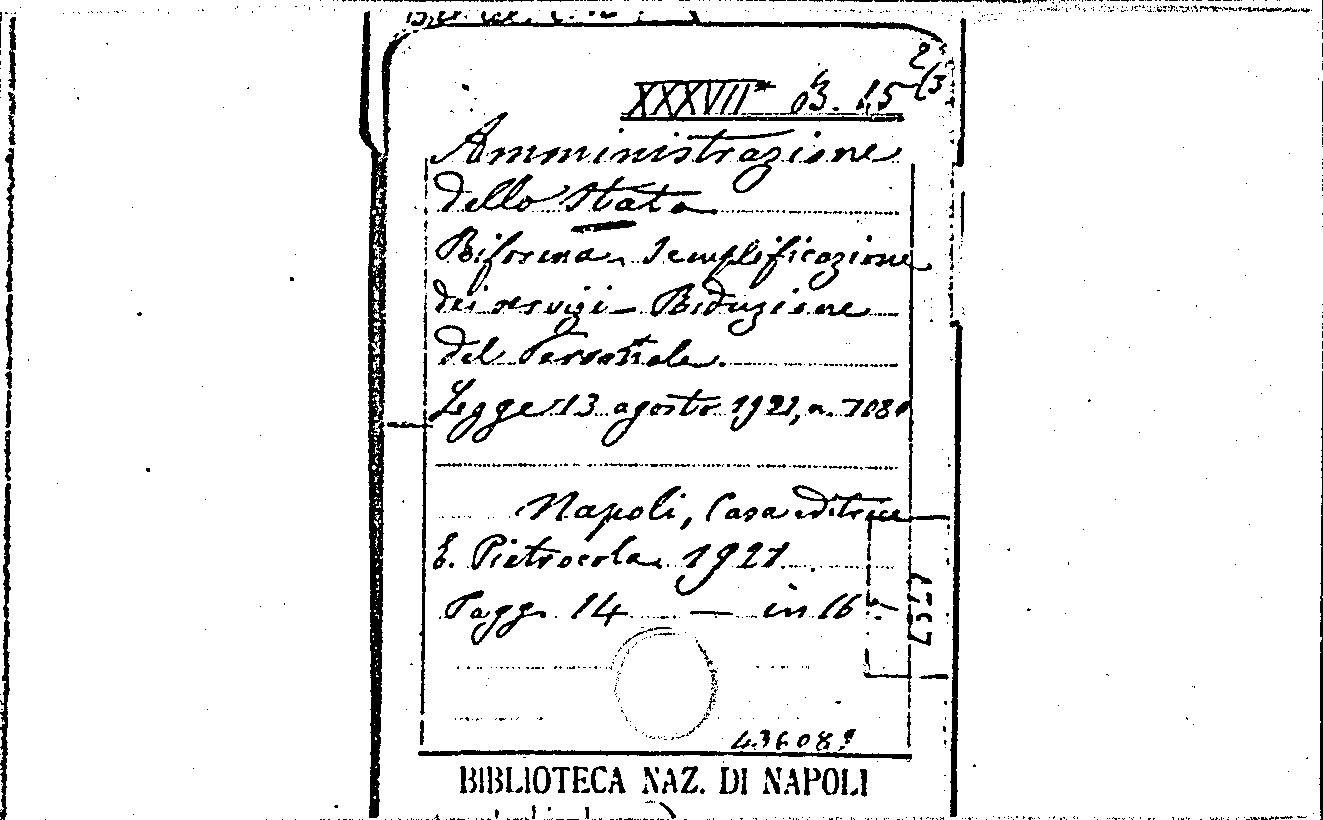 XXXVII* B. 15
2/3
Amministrazione
dello Stato
Riforma. Semplificazione
dei servizi – Riduzione
del Personale.
Legge 13 agosto 1921, n. 1080
Napoli, Casa editrice
E. Pietrocola. 1921
Pagg. 14 — in 16°
436089
BIBLIOTECA NAZ. DI NAPOLI